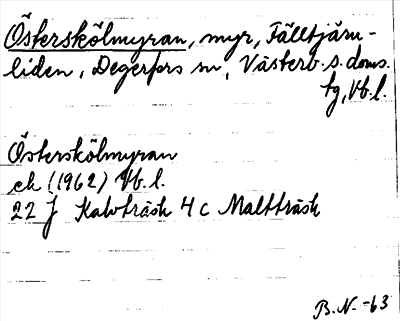 Österskölmyran, myr, Fälltjärn-
liden, Degerfors sn, Västerb. s. doms.
tg, Vb. l.
Österskölmyran
ek (1962) Vb. l.
22 J Kalvträsk 4 c Maltträsk
B.N. -63